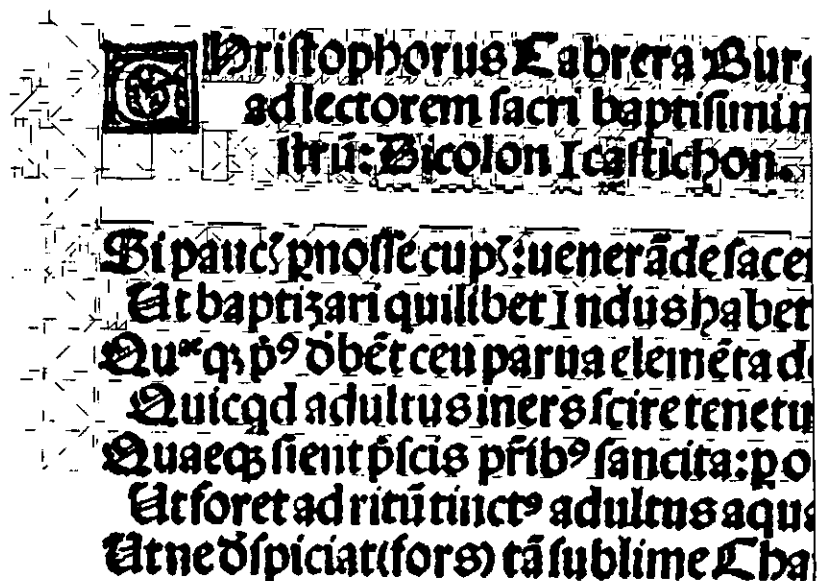 Christophorus Cabrera Bur
ad lectorem sacri baptisimin
strū: Dicolon Icastichon.
Si paucꝫ pnosse cupꝫ: uenerāde sacer
Ut baptizari quilibet Indus habet
Quᵃᵉ qꝫ pꝰ dbēt ceu parua elemēta d
Quicqd adultus iners scire tenetu
Quaeqꝫ sient pscis prībꝰ sancita: p o
Ut foret ad ritū tinctꝰ adultus aqua
Ut ne dspiciat (fors) tā sublime Cha